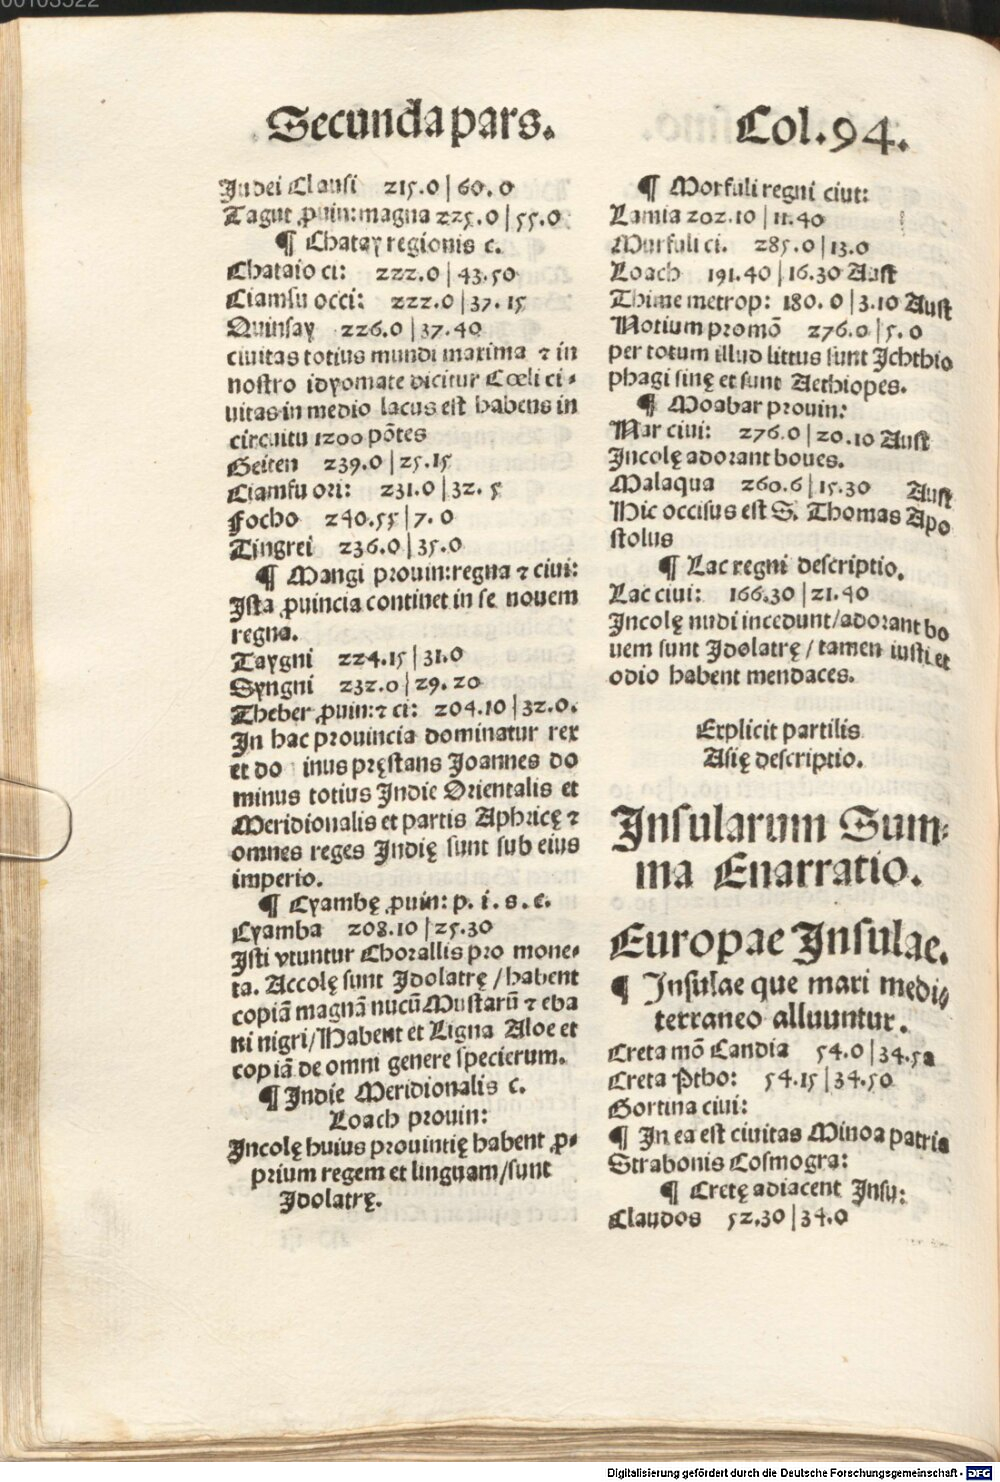 00103522
Secunda pars.
Col. 94.
Judei Clausi 215.0 | 60.0
Tagut ꝓuin: magna 225.0 | 55.0
¶ Chatay regionis c.
Chataio ci: 222.0 | 43.50
Ciamsu occi: 222.0 | 37.15
Quinsay 226.0 | 37.40
ciuitas totius mundi maxima ⁊ in
nostro idyomate dicitur Cœli ci⸗
uitas in medio lacus est habens in
circuitu 1200 põtes
Geiten 239.0 | 25.15
Ciamfu ori: 231.0 | 32.5
Focho 240.55 | 7.0
Tingrei 236.0 | 35.0
¶ Mangi prouin: regna ⁊ ciui:
Ista ꝓuincia continet in se nouem
regna.
Taygni 224.15 | 31.0
Syngni 232.0 | 29.20
Theber ꝓuin: ⁊ ci: 204.10 | 32.0.
In hac prouincia dominatur rex
et do inus pręstans Joannes do
minus totius Indie Orientalis et
Meridionalis et partis Aphricę ⁊
omnes reges Indię sunt sub eius
imperio.
¶ Cyambę ꝓuin: p. i. s. c.
Cyamba 208.10 | 25.30
Isti vtuntur Chorallis pro mone⸗
ta. Accolę sunt Idolatrę / habent
copiã magnã nucũ Mustarũ ⁊ eba
ni nigri / Habent et Ligna Aloe et
copiã de omni genere specierum.
¶ Indie Meridionalis c.
Loach prouin:
Incolę huius prouintię habent ꝓ⸗
prium regem et linguam / sunt
Idolatrę.
¶ Morfuli regni ciut:
Lamia 202.10 | 11.40
Murfuli ci. 285.0 | 13.0
Loach 191.40 | 16.30 Aust
Thime metrop: 180.0 | 3.10 Aust
Notium promõ 276.0 | 5.0
per totum illud littus sunt Ichthio
phagi sinę et sunt Aethiopes.
¶ Moabar prouin:
Mar ciui: 276.0 | 20.10 Aust
Incolę adorant boues.
Malaqua 260.6 | 15.30 Aust
Hic occisus est S. Thomas Apo
stolus
¶ Lac regni descriptio.
Lac ciui: 166.30 | 21.40
Incolę nudi incedunt / adorant bo
uem sunt Idolatrę / tamen iusti et
odio habent mendaces.
Explicit partilis
Asię descriptio.
Insularum Sum⸗
ma Enarratio.
Europae Insulae.
¶ Insulae que mari medi⸗
terraneo alluuntur.
Creta mõ Candia 54.0 | 34.52
Creta Ptho: 54.15 | 34.50
Gortina ciui:
¶ In ea est ciuitas Minoa patria
Strabonis Cosmogra:
¶ Cretę adiacent Insu:
Claudos 52.30 | 34.0
Digitalisierung gefördert durch die Deutsche Forschungsgemeinschaft - DFG